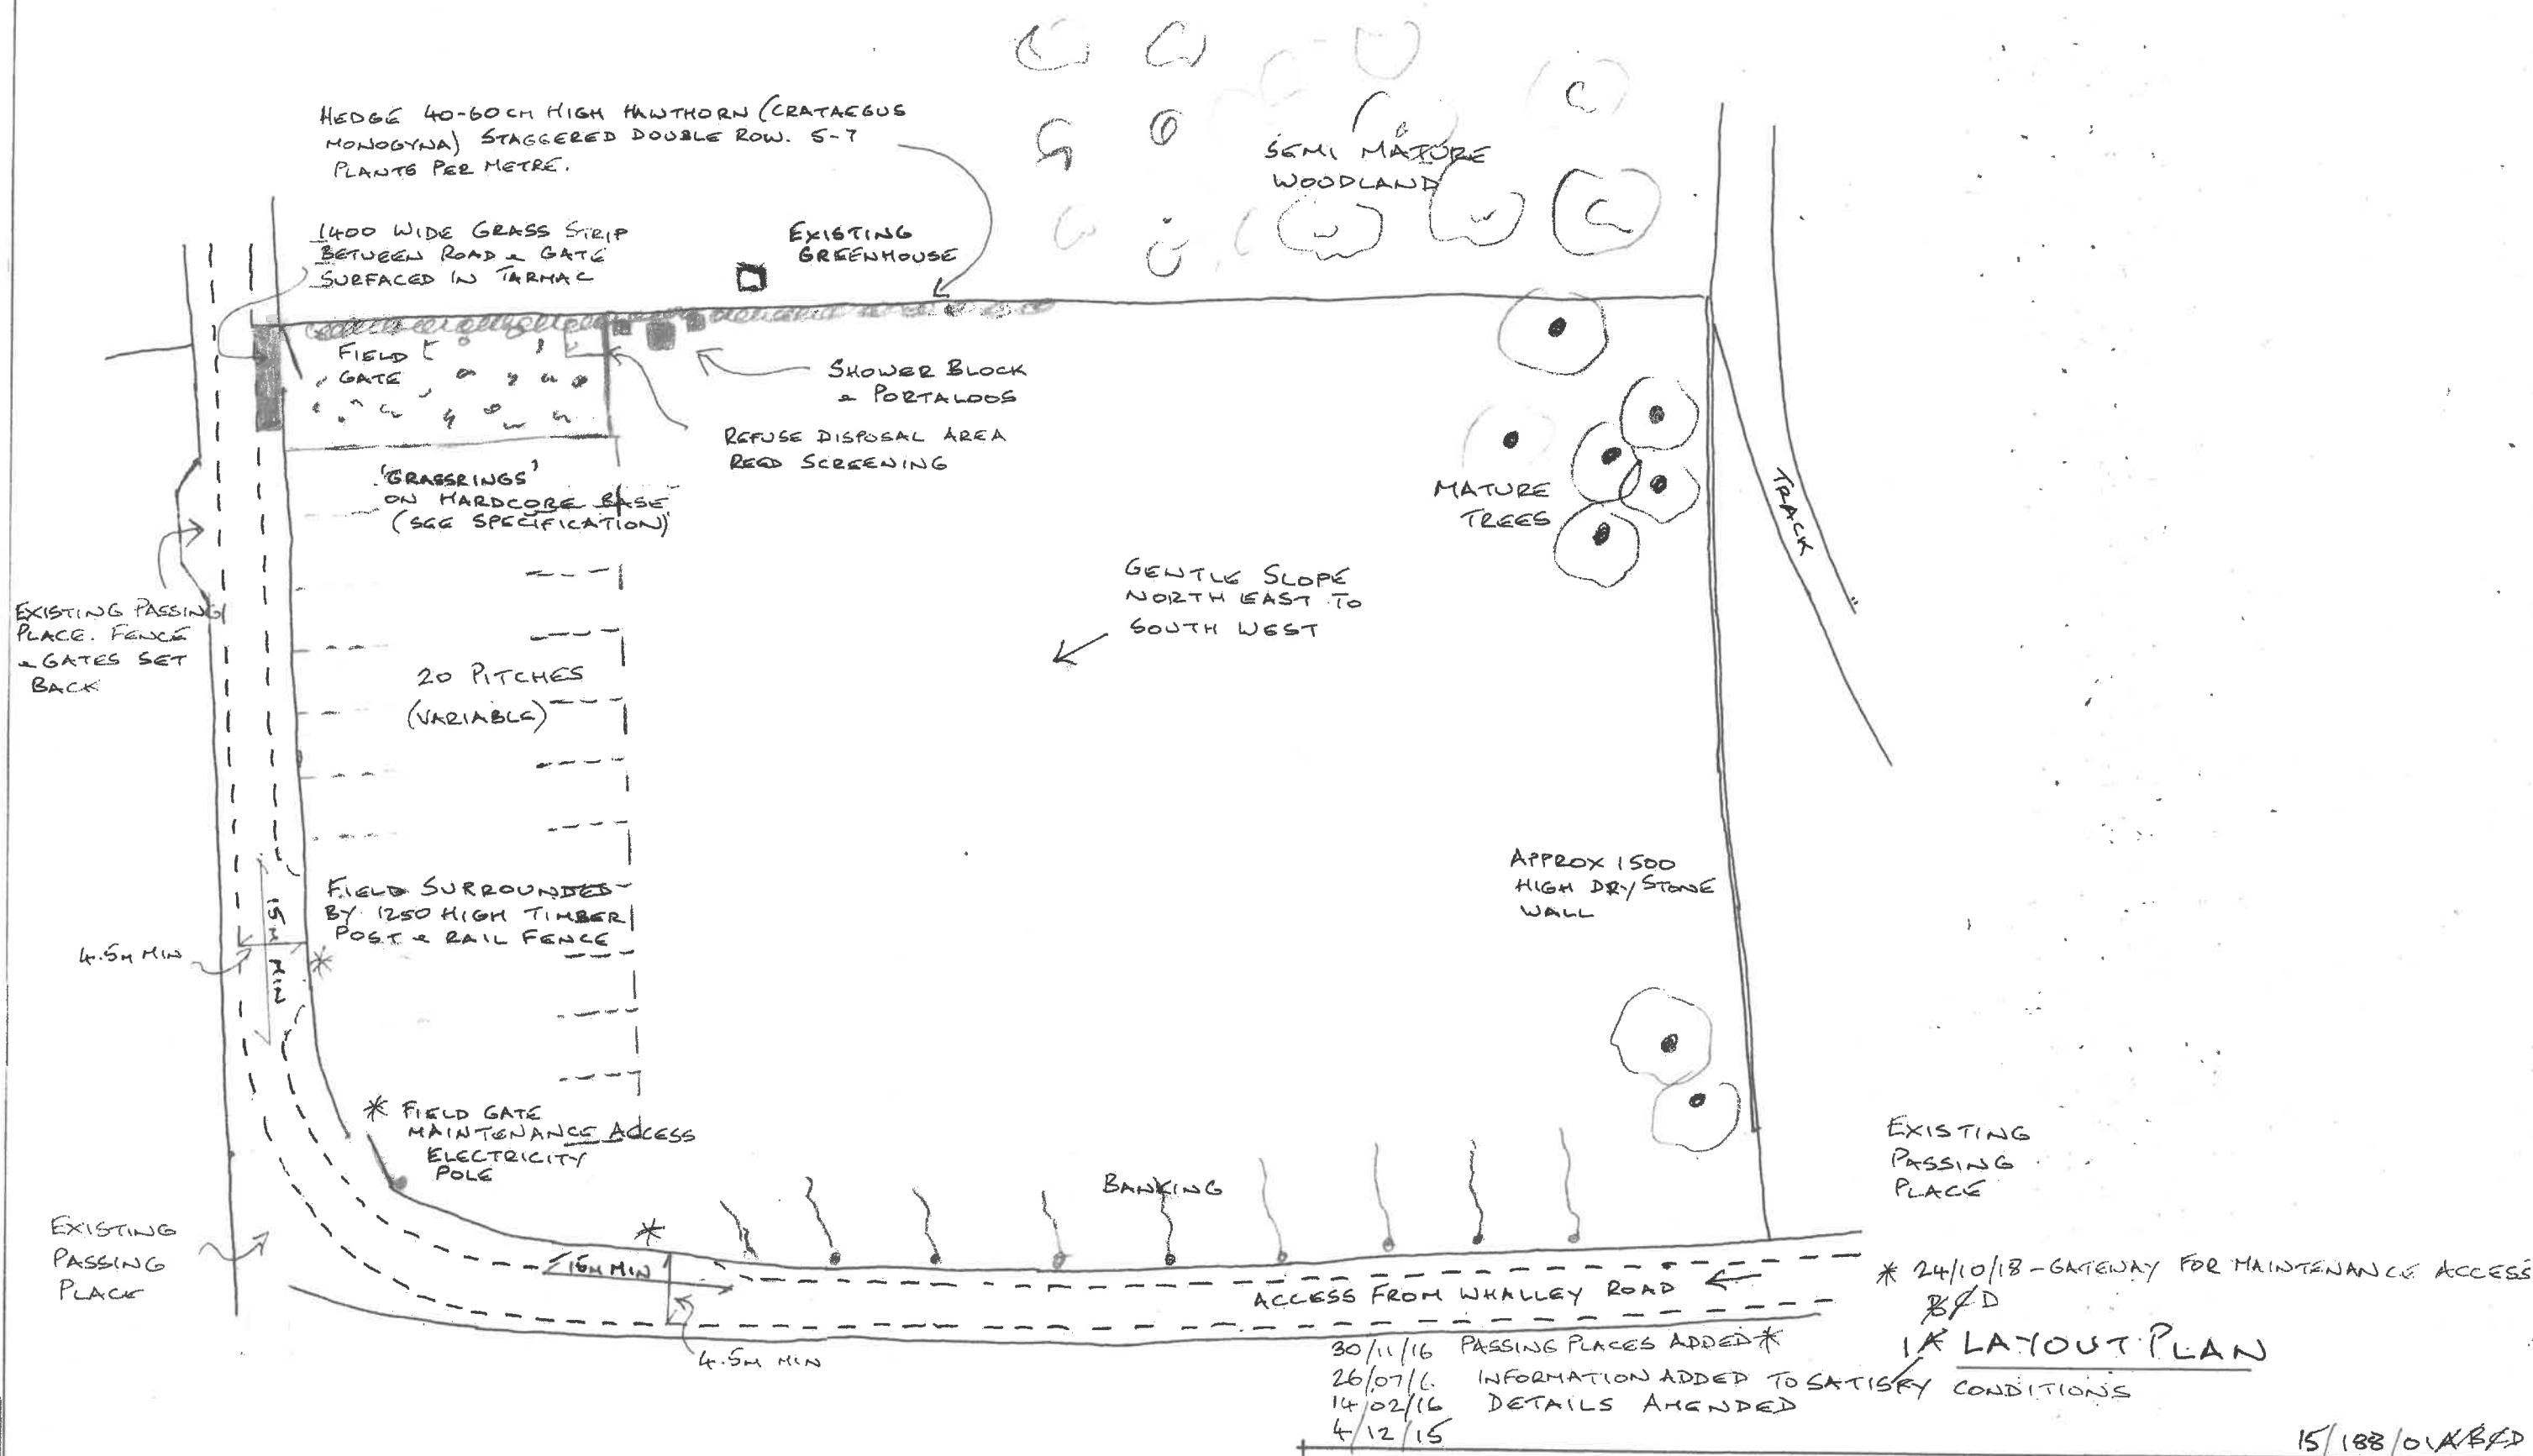 HEDGE 40-60CM HIGH HAWTHORN (CRATAEGUS
MONOGYNA) STAGGERED DOUBLE ROW. 5-7
PLANTS PER METRE.
1400 WIDE GRASS STRIP
BETWEEN ROAD & GATE
SURFACED IN TARMAC
EXISTING
GREENHOUSE
SEMI MATURE
WOODLAND
FIELD
GATE
SHOWER BLOCK
& PORTALOOS
REFUSE DISPOSAL AREA
REED SCREENING
'GRASSRINGS'
ON HARDCORE BASE
(SEE SPECIFICATION)
MATURE
TREES
TRACK
GENTLE SLOPE
NORTH EAST TO
SOUTH WEST
EXISTING PASSING
PLACE. FENCE
& GATES SET
BACK
20 PITCHES
(VARIABLE)
APPROX 1500
HIGH DRY STONE
WALL
FIELD SURROUNDED
BY 1250 HIGH TIMBER
POST & RAIL FENCE
15M MIN
4.5M MIN
*
* FIELD GATE
MAINTENANCE ACCESS
ELECTRICITY
POLE
BANKING
EXISTING
PASSING
PLACE
EXISTING
PASSING
PLACE
*
15M MIN
4.5M MIN
ACCESS FROM WHALLEY ROAD
* 24/10/18 - GATEWAY FOR MAINTENANCE ACCESS
B C D
1A LAYOUT PLAN
30/11/16 PASSING PLACES ADDED *
26/07/16 INFORMATION ADDED TO SATISFY CONDITIONS
14/02/16 DETAILS AMENDED
4/12/15
15/188/01 A B C D